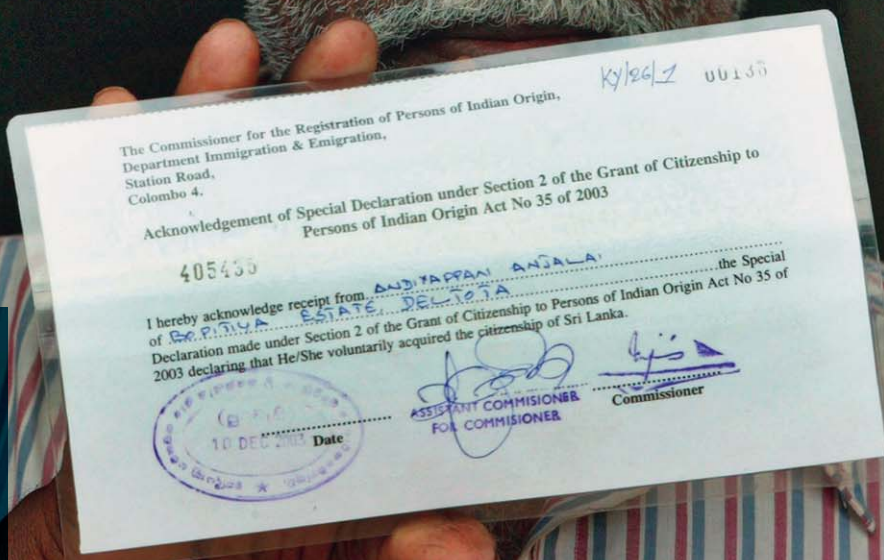 KY/26/1
The Commissioner for the Registration of Persons of Indian Origin,
Department Immigration & Emigration,
Station Road,
Colombo 4.
Acknowledgement of Special Declaration under Section 2 of the Grant of Citizenship to
Persons of Indian Origin Act No 35 of 2003
I hereby acknowledge receipt from ANDIYAPPAN ANJALAI
of BOPITIYA ESTATE, DELTOTA the Special
Declaration made under Section 2 of the Grant of Citizenship to Persons of Indian Origin Act No 35 of
2003 declaring that He/She voluntarily acquired the citizenship of Sri Lanka.
10 DEC 2003 Date
ASSISTANT COMMISIONER
FOR COMMISIONER
Commissioner